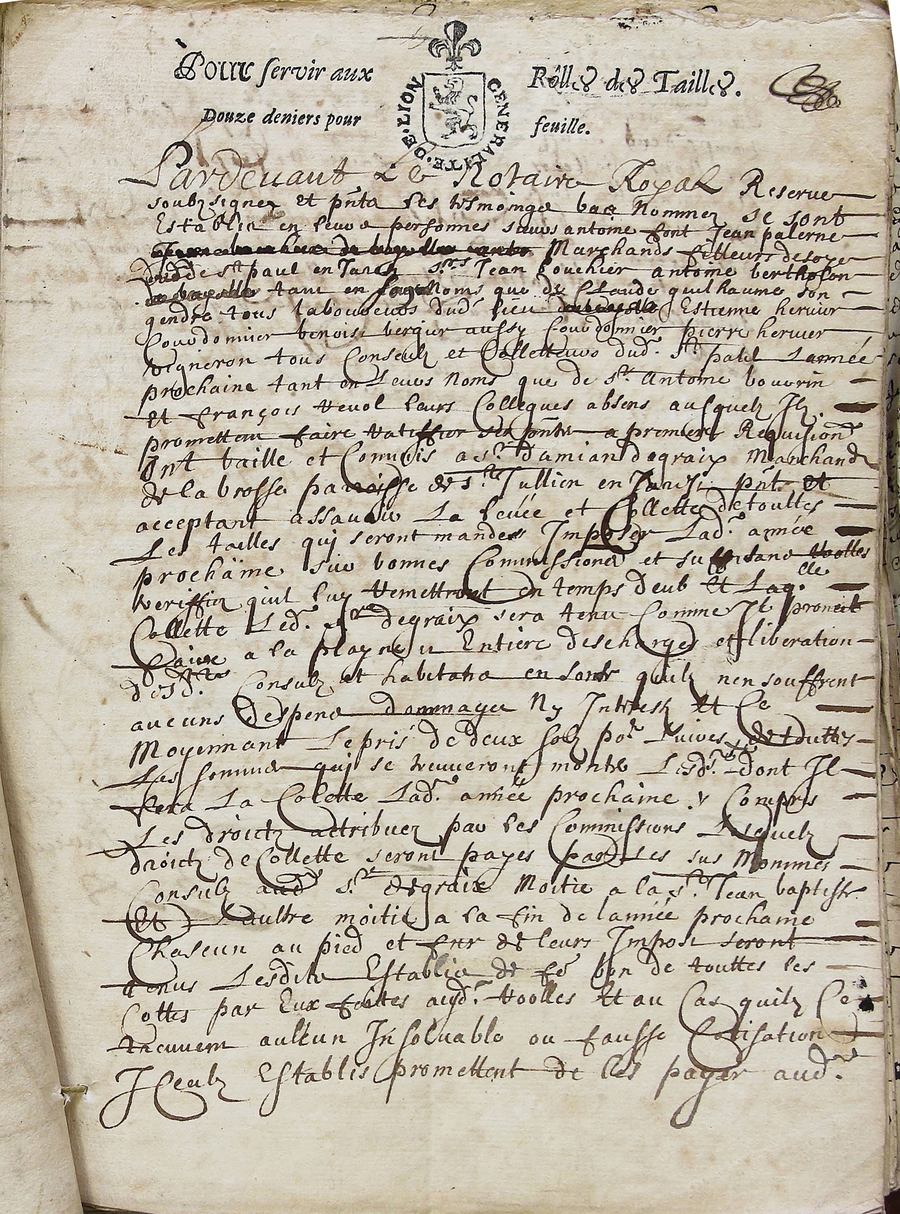 Pour servir aux Rôlles des Tailles.
Douze deniers pour feuille.
GENERALITE · DE · LION
Pardevant Le Notaire Royal Reserve
soubzsignez et pnts les tesmoings bas Nommez se sont
Establis en leurs personnes sieurs antome font Jean palerne
Marchands filleurs de soye
dud de st paul en Jarestz srs Jean bertholon
tant en Noms que de Claude guilhaume son
gendre tous laboureurs dud. lieu Estienne hervier
Courdomier benoist verqur aussy Courdomier pierre hervier
Vigneron tous Consulz et Collecteurs dud. st paul Lannée
prochaine tant en Leurs Noms que de sr. Antome bouvrin
Et françois Revol leurs Collegues absens ausquelz Ilz
promettent faire Ratiffier a premiere Requisition
Ont baille et Commis a sr. Damian degraix Marchand
de la brosse parroisse de st. Jullien en Jarestz pnt. et
acceptant assavoir La levée et Collette de touttes
Les tailles qui seront mandees Imposer Lad. année
prochaine sur bonnes Commissions et Roolles
veriffiez quil luy Remettront en temps deub Et Laqlle
Collette Led. sr degraix sera tenu Comme Il promet
faire a la Entiere descharge et liberation
desd. Consulz et habitans en sorte quilz nen souffrent
aucuns despens dommages Ny Interest Et Ce
Moyennant Le pris de deux solz por Livres de touttes
Les sommes qui se treuveront monter Lesd. dont Il
fera La Colette Lad. année prochaine y Compris
Les droictz attribuez par les Commissions Lesquelz
droictz de Collette seront payes par Les sus Nommes
Consulz aud. sr. degraix Moitie a la st. Jean baptiste
Et Lautre moitie a la fin de lannée prochaine
Chascun au pied et fur de leurs Impost seront
tenus Lesdits Establis de fe bon de touttes les
Cottes par Eux faittes ausd. Roolles Et au Cas quilz Ce
treuvent aulcun Insolvable ou fausse Cotisation
Iceulz Establis promettent de les payer aud.